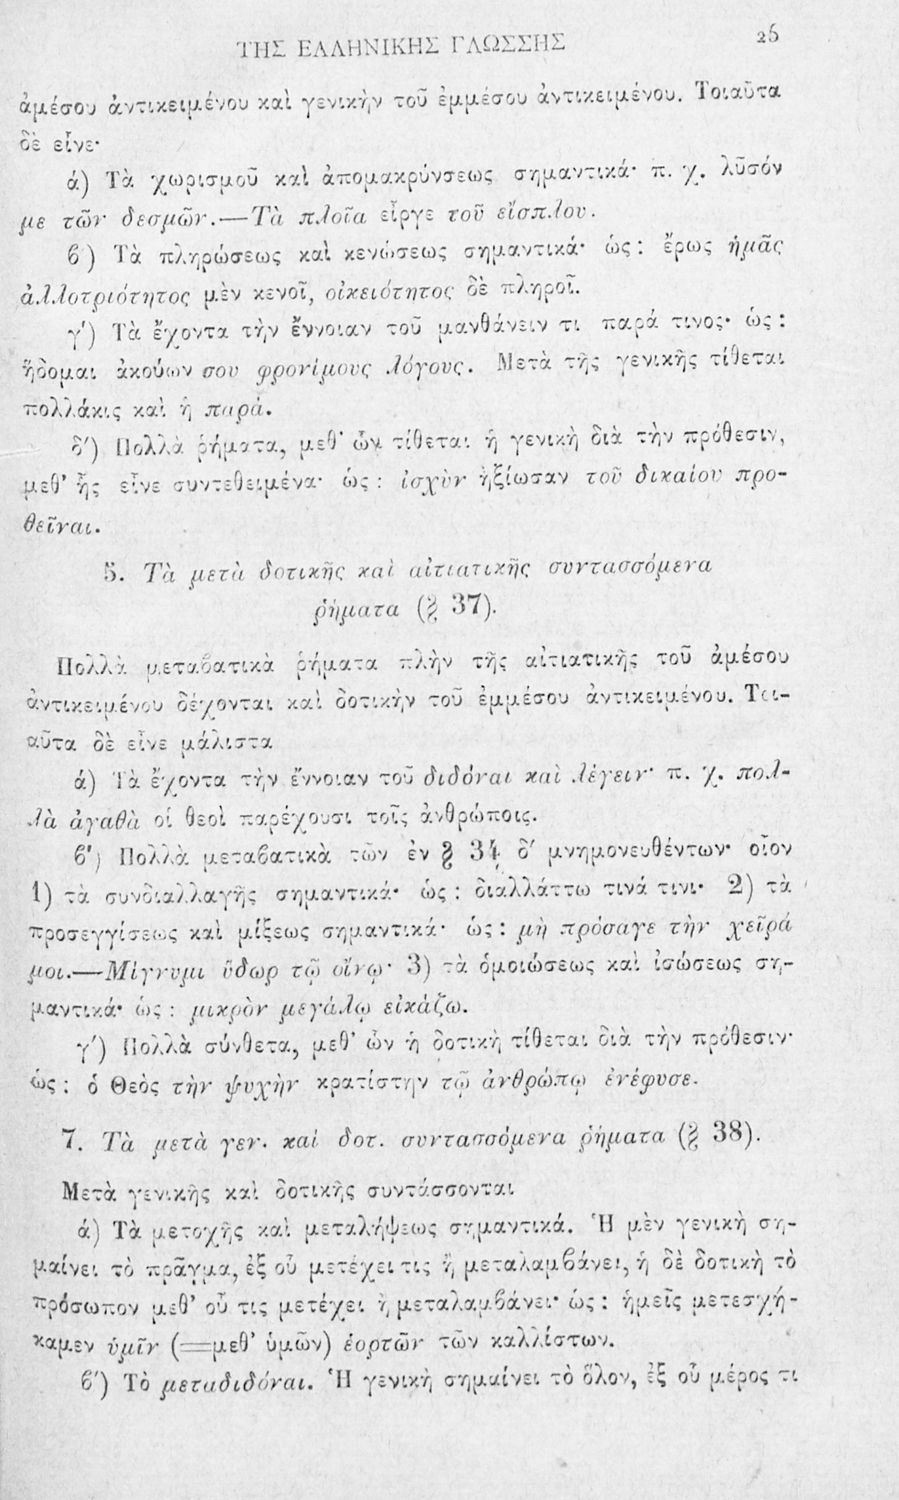 ΤΗΣ ΕΛΛΗΝΙΚΗΣ ΓΛΩΣΣΗΣ 25
ἀμέσου ἀντικειμένου καὶ γενικὴν τοῦ ἐμμέσου ἀντικειμένου. Τοιαῦτα
δὲ εἶνε·
ά) Τὰ χωρισμοῦ καὶ ἀπομακρύνσεως σημαντικά· π. χ. λῦσόν
με τῶν δεσμῶν.—Τὰ πλοῖα εἶργε τοῦ εἴσπλου.
β΄) Τὰ πληρώσεως καὶ κενώσεως σημαντικά· ὡς : ἔρως ἡμᾶς
ἀλλοτριότητος μὲν κενοῖ, οἰκειότητος δὲ πληροῖ.
γ΄) Τὰ ἔχοντα τὴν ἔννοιαν τοῦ μανθάνειν τι παρά τινος· ὡς :
ἥδομαι ἀκούων σου φρονίμους λόγους. Μετὰ τῆς γενικῆς τίθεται
πολλάκις καὶ ἡ παρά.
δ΄) Πολλὰ ῥήματα, μεθ' ὧν τίθεται ἡ γενικὴ διὰ τὴν πρόθεσιν,
μεθ' ἧς εἶνε συντεθειμένα· ὡς : ἰσχὺν ἠξίωσαν τοῦ δικαίου προ-
θεῖναι.
5. Τὰ μετὰ δοτικῆς καὶ αἰτιατικῆς συντασσόμενα
ῥήματα (§ 37).
Πολλὰ μεταβατικὰ ῥήματα πλὴν τῆς αἰτιατικῆς τοῦ ἀμέσου
ἀντικειμένου δέχονται καὶ δοτικὴν τοῦ ἐμμέσου ἀντικειμένου. Τοι-
αῦτα δὲ εἶνε μάλιστα
ά) Τὰ ἔχοντα τὴν ἔννοιαν τοῦ διδόναι καὶ λέγειν· π. χ. πολ-
λὰ ἀγαθὰ οἱ θεοὶ παρέχουσι τοῖς ἀνθρώποις.
β΄) Πολλὰ μεταβατικὰ τῶν ἐν § 34 δ΄ μνημονευθέντων· οἷον
1) τὰ συνδιαλλαγῆς σημαντικά· ὡς : διαλλάττω τινά τινι· 2) τὰ
προσεγγίσεως καὶ μίξεως σημαντικά· ὡς : μὴ πρόσαγε τὴν χεῖρά
μοι.—Μίγνυμι ὕδωρ τῷ οἴνῳ· 3) τὰ ὁμοιώσεως καὶ ἰσώσεως ση-
μαντικά· ὡς : μικρὸν μεγάλῳ εἰκάζω.
γ΄) Πολλὰ σύνθετα, μεθ' ὧν ἡ δοτικὴ τίθεται διὰ τὴν πρόθεσιν·
ὡς : ὁ Θεὸς τὴν ψυχὴν κρατίστην τῷ ἀνθρώπῳ ἐνέφυσε.
7. Τὰ μετὰ γεν. καὶ δοτ. συντασσόμενα ῥήματα (§ 38).
Μετὰ γενικῆς καὶ δοτικῆς συντάσσονται
ά) Τὰ μετοχῆς καὶ μεταλήψεως σημαντικά. Ἡ μὲν γενικὴ ση-
μαίνει τὸ πρᾶγμα, ἐξ οὗ μετέχει τις ἢ μεταλαμβάνει, ἡ δὲ δοτικὴ τὸ
πρόσωπον μεθ' οὗ τις μετέχει ἢ μεταλαμβάνει· ὡς : ἡμεῖς μετεσχή-
καμεν ὑμῖν (=μεθ' ὑμῶν) ἑορτῶν τῶν καλλίστων.
β΄) Τὸ μεταδιδόναι. Ἡ γενικὴ σημαίνει τὸ ὅλον, ἐξ οὗ μέρος τι